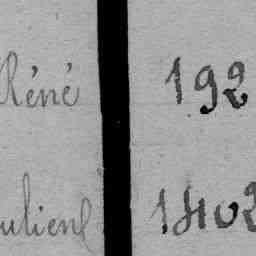 Réné 192
ulien 1402